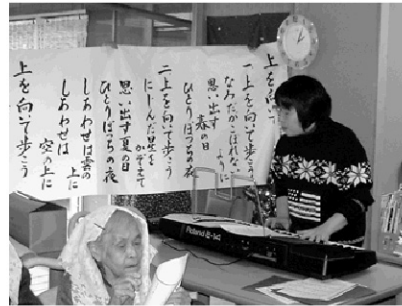 上を向いて
一 上を向いて歩こう
なみだがこぼれな
ように
思い出す
春の日
ひとりぼっちの夜
二 上を向いて歩こう
にじんだ星を
かぞえて
思い出す夏の日
ひとりぼっちの夜
しあわせは雲の
上に
しあわせは
空の上に
上を向いて歩こう
Roland